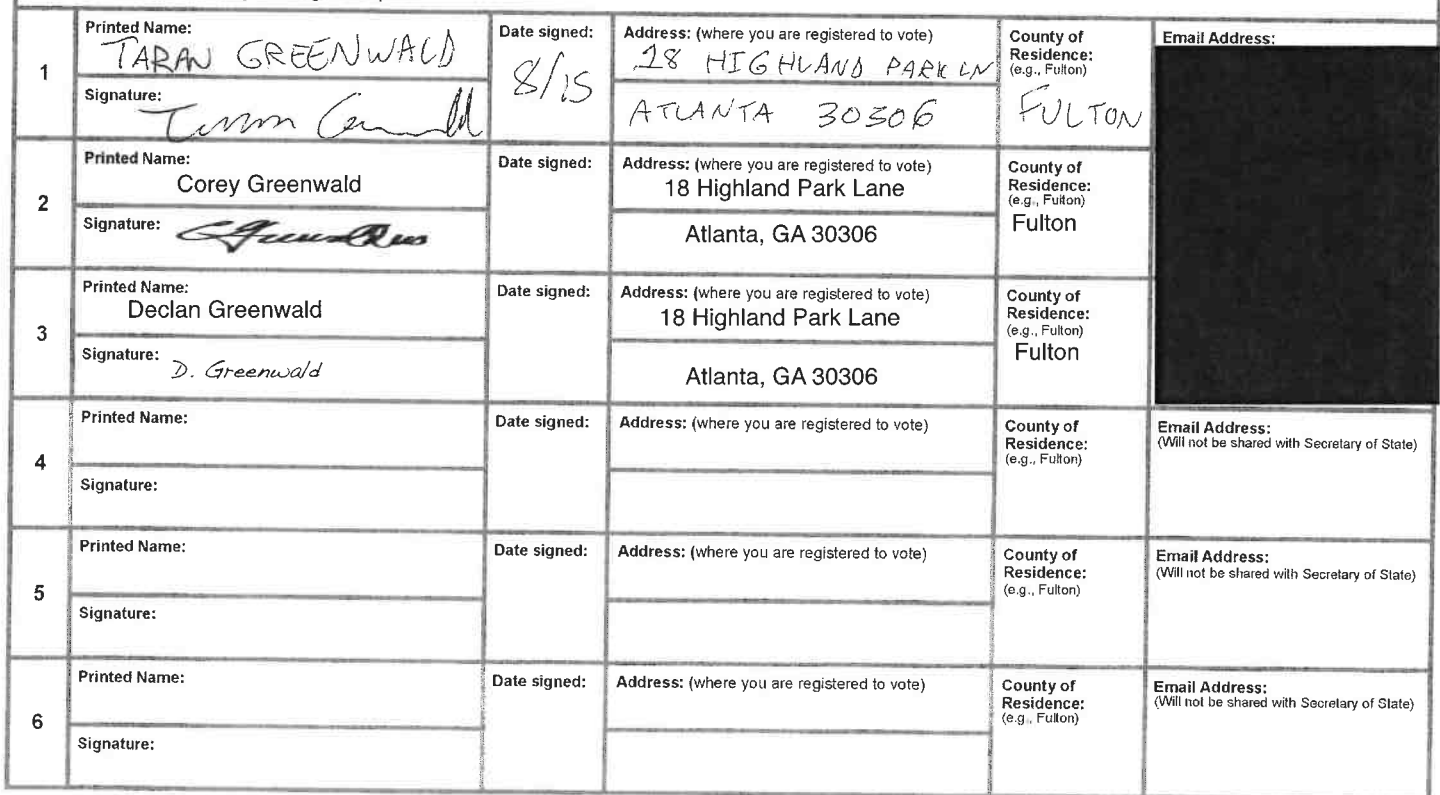 1
Printed Name:
TARAN GREENWALD
Signature:
Date signed:
8/15
Address: (where you are registered to vote)
18 HIGHLAND PARK LN
ATLANTA 30306
County of
Residence:
(e.g., Fulton)
FULTON
Email Address:
2
Printed Name:
Corey Greenwald
Signature:
Date signed:
Address: (where you are registered to vote)
18 Highland Park Lane
Atlanta, GA 30306
County of
Residence:
(e.g., Fulton)
Fulton
3
Printed Name:
Declan Greenwald
Signature:
D. Greenwald
Date signed:
Address: (where you are registered to vote)
18 Highland Park Lane
Atlanta, GA 30306
County of
Residence:
(e.g., Fulton)
Fulton
4
Printed Name:
Signature:
Date signed:
Address: (where you are registered to vote)
County of
Residence:
(e.g., Fulton)
Email Address:
(Will not be shared with Secretary of State)
5
Printed Name:
Signature:
Date signed:
Address: (where you are registered to vote)
County of
Residence:
(e.g., Fulton)
Email Address:
(Will not be shared with Secretary of State)
6
Printed Name:
Signature:
Date signed:
Address: (where you are registered to vote)
County of
Residence:
(e.g., Fulton)
Email Address:
(Will not be shared with Secretary of State)